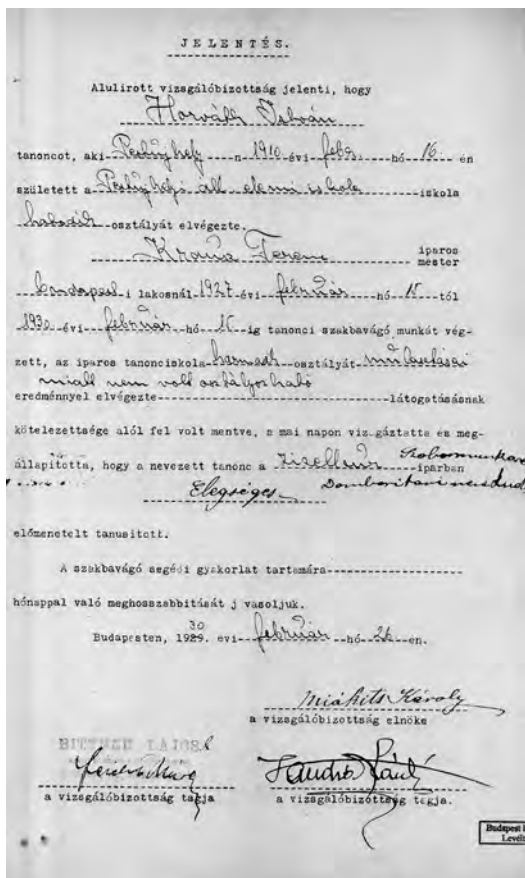 JELENTÉS.
Alulirott vizsgálóbizottság jelenti, hogy
Horváth István
tanoncot, aki n 1910 évi febr. hó 16 én
született a áll elemi iskola iskola
hatodik osztályát elvégezte.
Ferenc iparos
mester
Budapest i lakosnál 1927 évi február hó 15 tól
1930 évi február hó 15 ig tanonci szakbavágó munkát vég-
zett, az iparos tanonciskola harmadik osztályát mulasztásai
miatt nem volt osztályozható
eredménnyel elvégezte látogatásának
kötelezettsége alól fel volt mentve, a mai napon vizsgáztatta és meg-
állapitotta, hogy a nevezett tanonc a iparban
Elegséges
előmenetelt tanusitott.
A szakbavágó segédi gyakorlat tartamára
hónappal való meghosszabbitását j vasoljuk.
30
Budapesten, 1929. évi február hó 26 en.
Miákits Károly
a vizsgálóbizottság elnöke
BITTNER LAJOS
a vizsgálóbizottság tagja
a vizsgálóbizottság tagja.
Budapest
Levélt